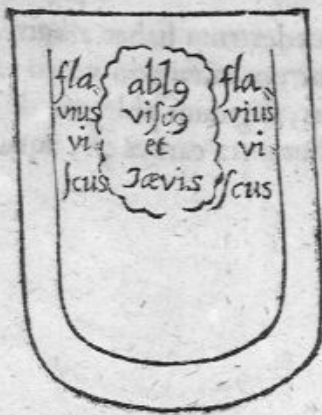 fla-
vius
vi
ſcus
abl9
viſc9
et
Jævis
fla-
vius
vi
ſcus